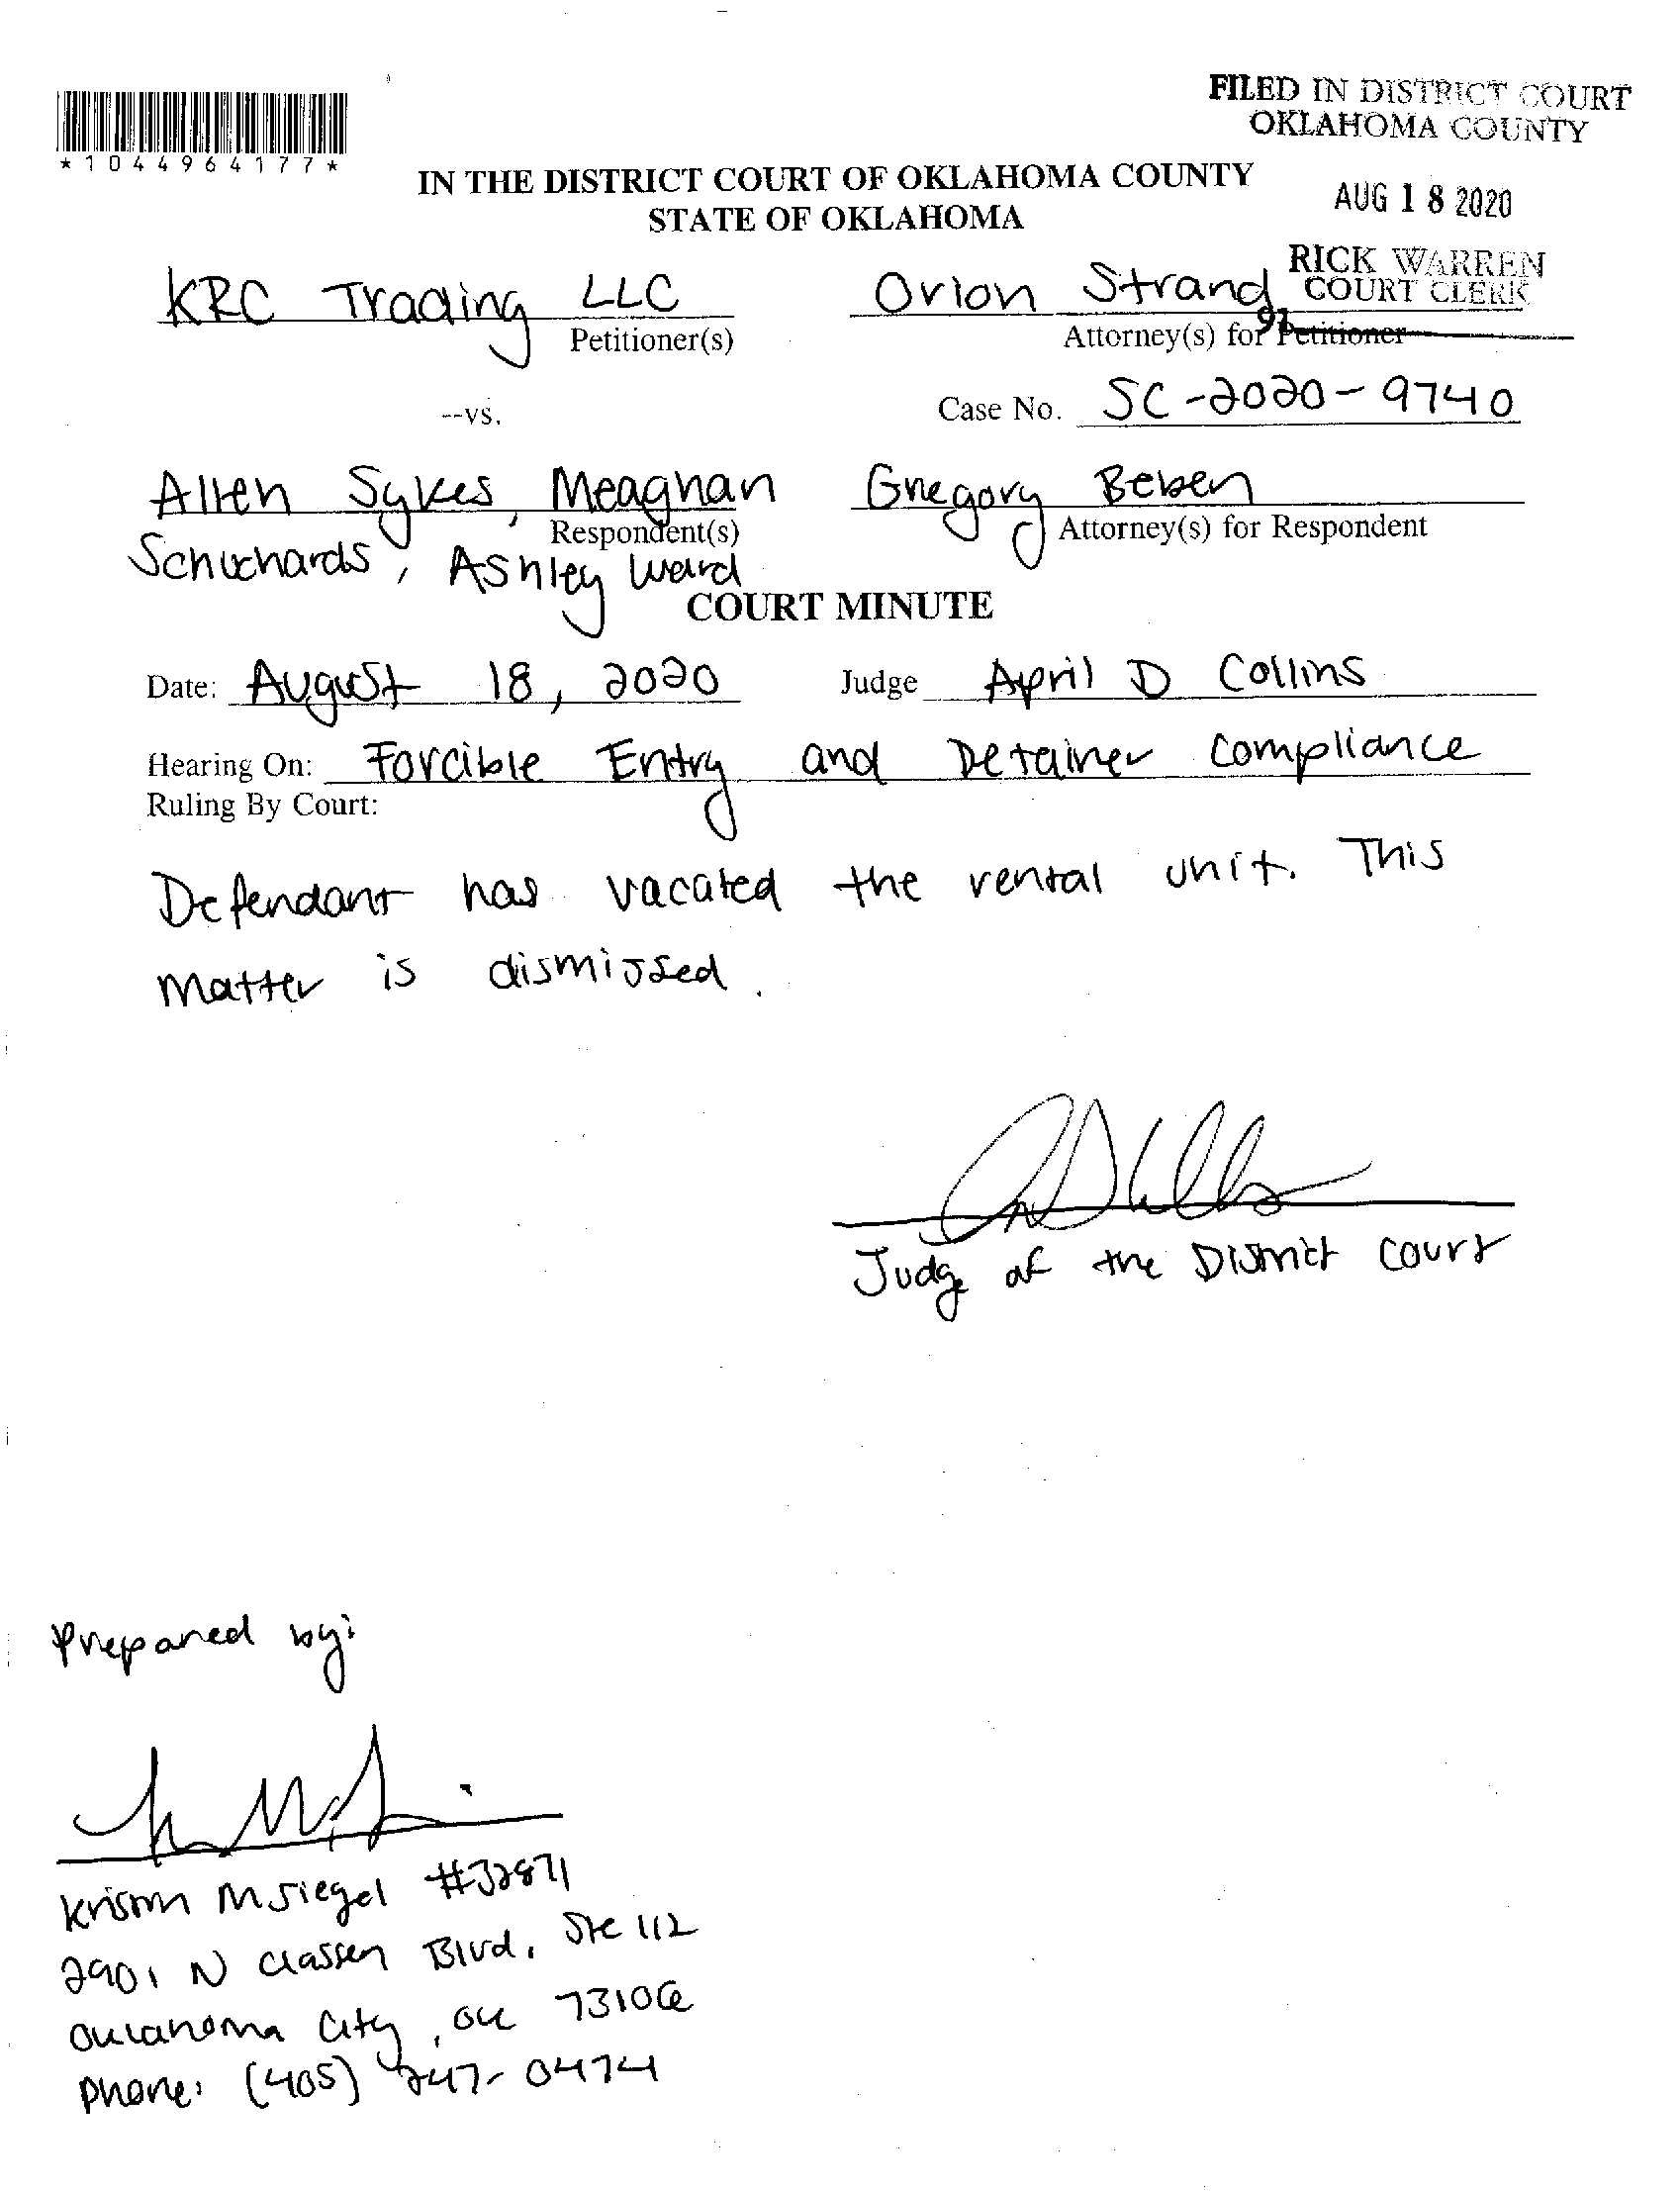 *1044964177*
FILED IN DISTRICT COURT
OKLAHOMA COUNTY
IN THE DISTRICT COURT OF OKLAHOMA COUNTY
STATE OF OKLAHOMA
AUG 18 2020
RICK WARREN
COURT CLERK
KRC Trading LLC
Petitioner(s)
Orion Strand
Attorney(s) for Petitioner
91
--vs.
Case No. SC-2020-9740
Allen Sykes, Meaghan
Respondent(s)
Schuchards, Ashley Ward
Gregory Beben
Attorney(s) for Respondent
COURT MINUTE
Date: August 18, 2020 Judge April D Collins
Hearing On: Forcible Entry and Detainer Compliance
Ruling By Court:
Defendant has vacated the rental unit. This
matter is dismissed.
Judge of the District Court
Prepared by:
Kristin M Siegel #32871
2901 N Classen Blvd, Ste 112
Oklahoma City, OK 73106
Phone: (405) 247-0474